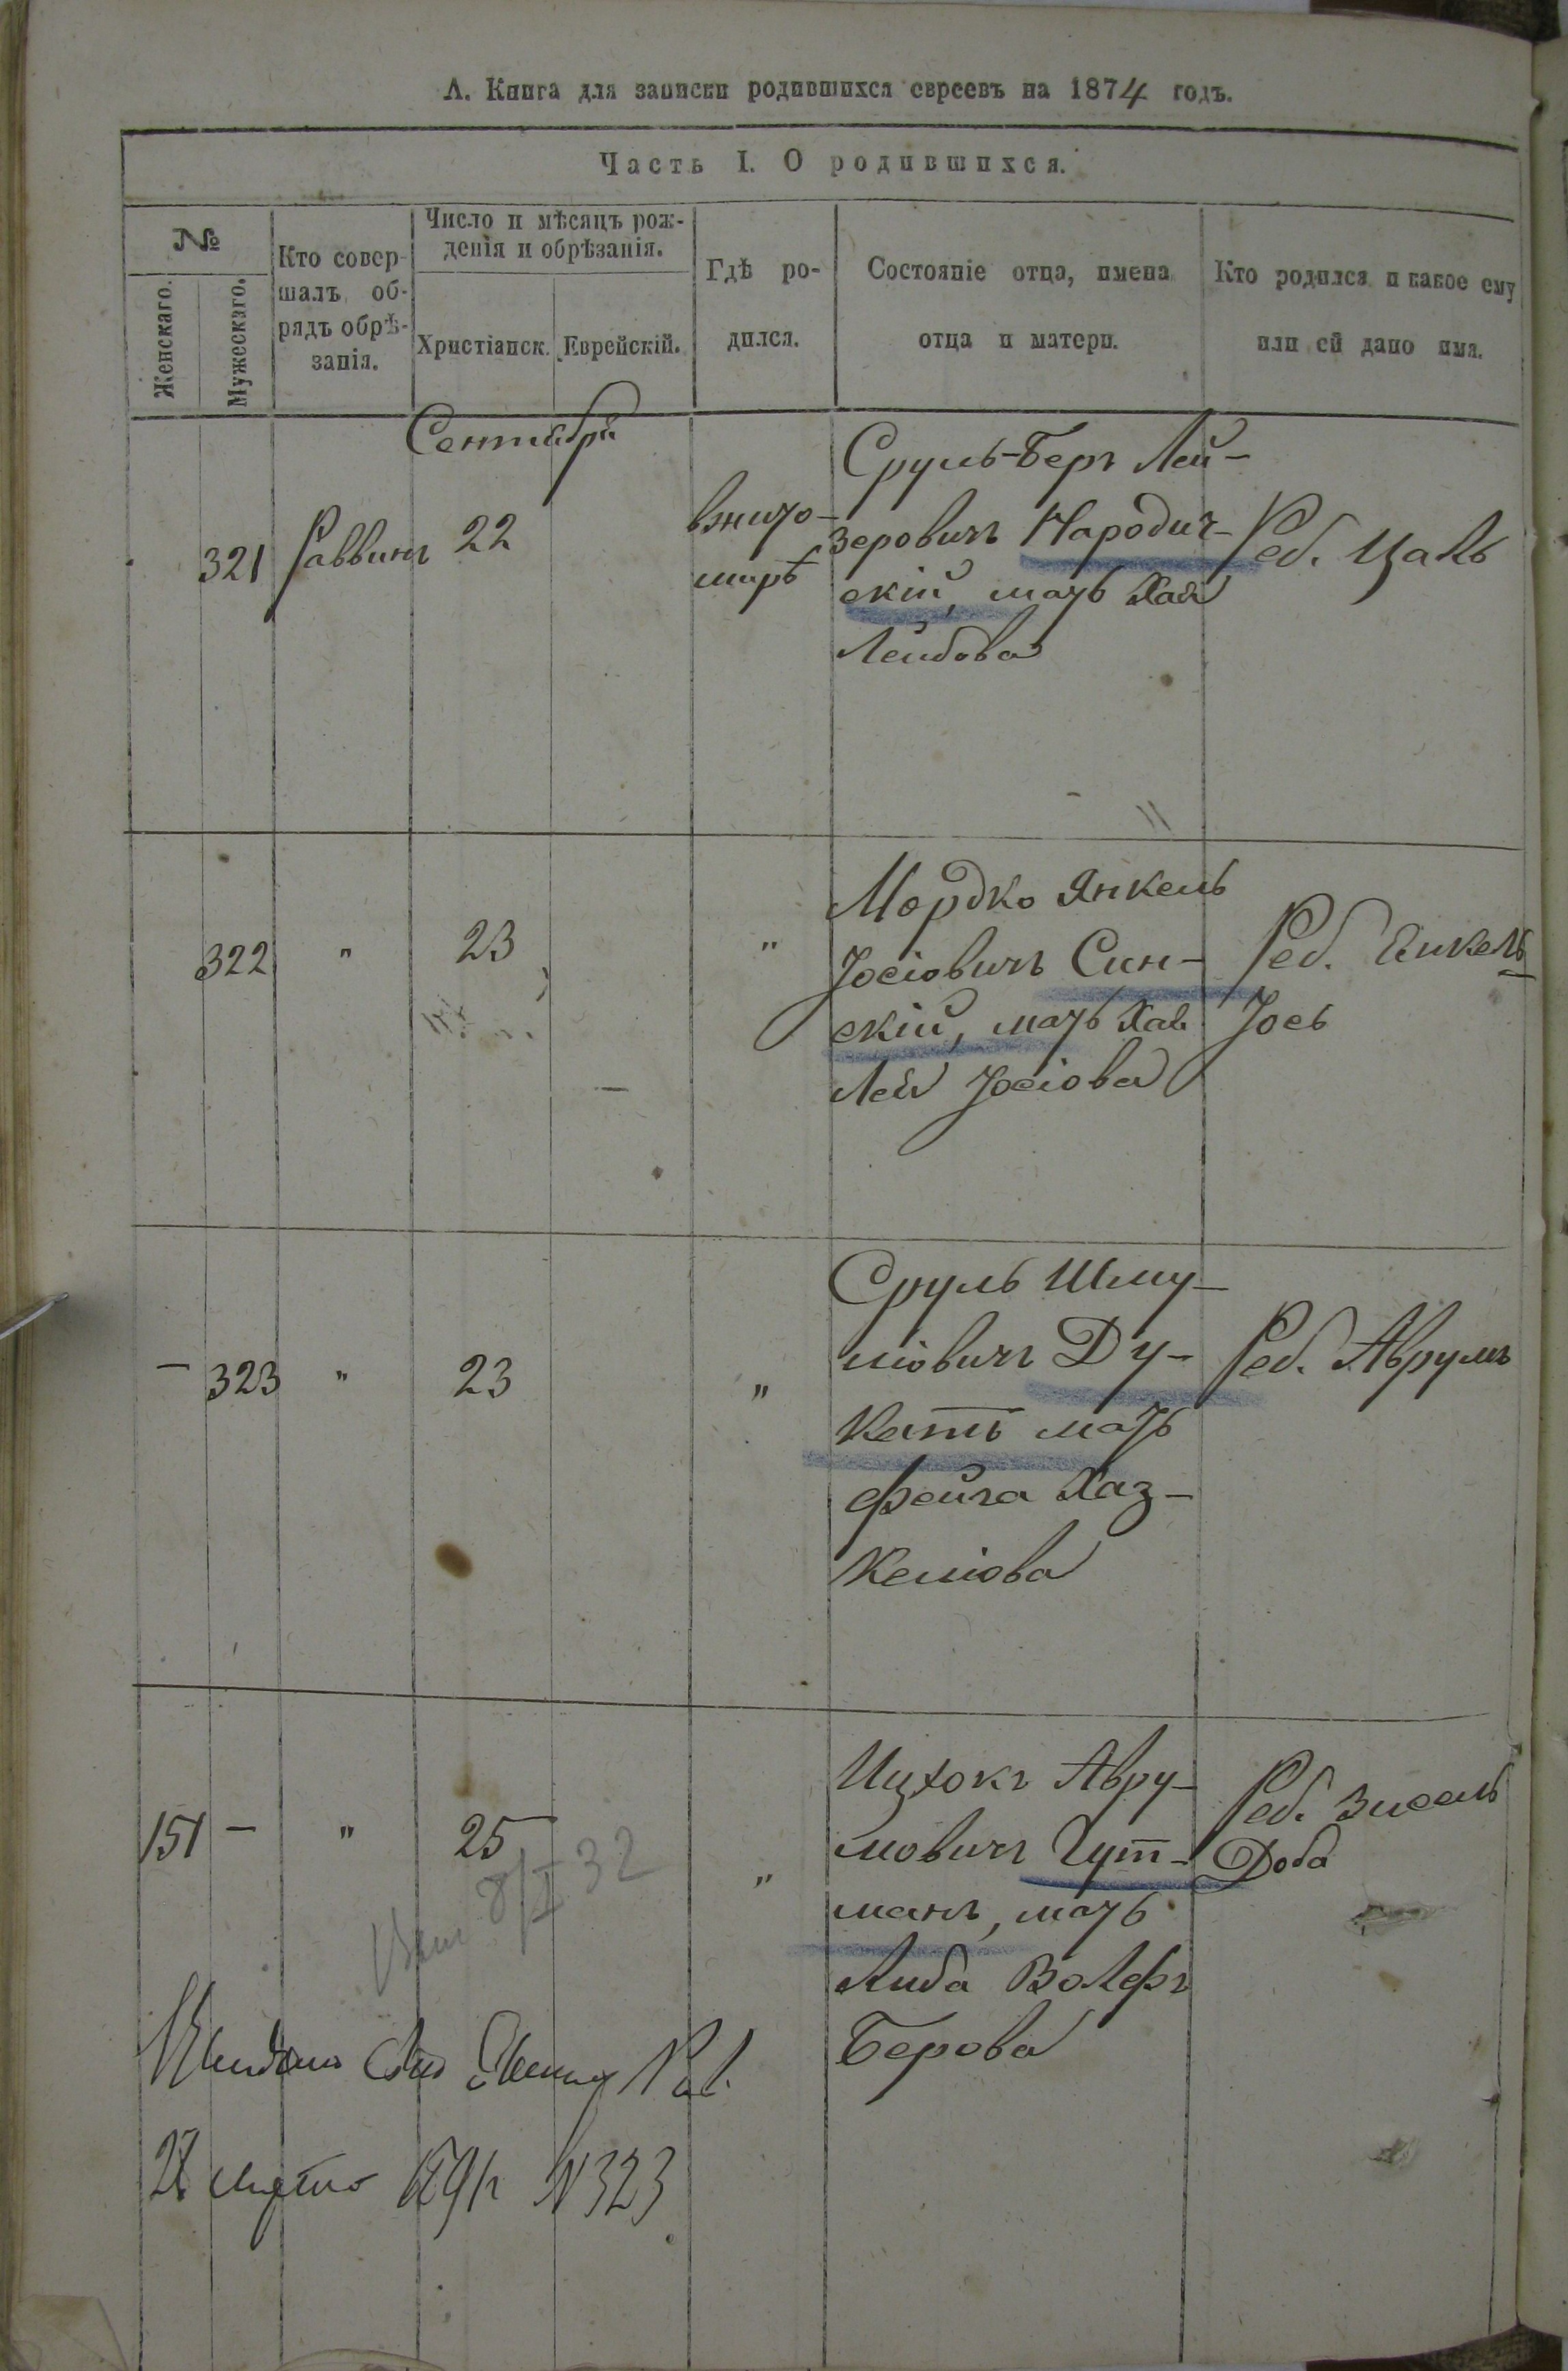 А. Книга для записки родившихся евреевъ на 1874 годъ.
Часть I. О родившихся.
№
Женскаго.
Мужескаго.
Кто совер-
шалъ об-
рядъ обрѣ-
занія.
Число и мѣсяцъ рож-
денія и обрѣзанія.
Христіанск.
Еврейскій.
Гдѣ ро-
дился.
Состояніе отца, имена
отца и матери.
Кто родился и какое ему
или ей дано имя.
Сентября
321
Раввинъ
22
вжито-
мирѣ
Сруль-Беръ Лей-
зеровичъ Народич-
скій, мать Хая
Лейбова
Реб. Цаль
322
"
23
"
Мордко Янкель
Іосіовичъ Син-
скій, мать Хая
Лея Іосіова
Реб.
Іось
–
323
"
23
"
Сруль Шму-
ліовичъ Ду-
катъ мать
Фейга Хаз-
келіова
Реб. Аврумъ
151
–
"
25
"
Ицхокъ Авру-
мовичъ Гут-
манъ, мать
Либа Волфъ
Берова
Реб. Зисель
Доба
32
№ 323